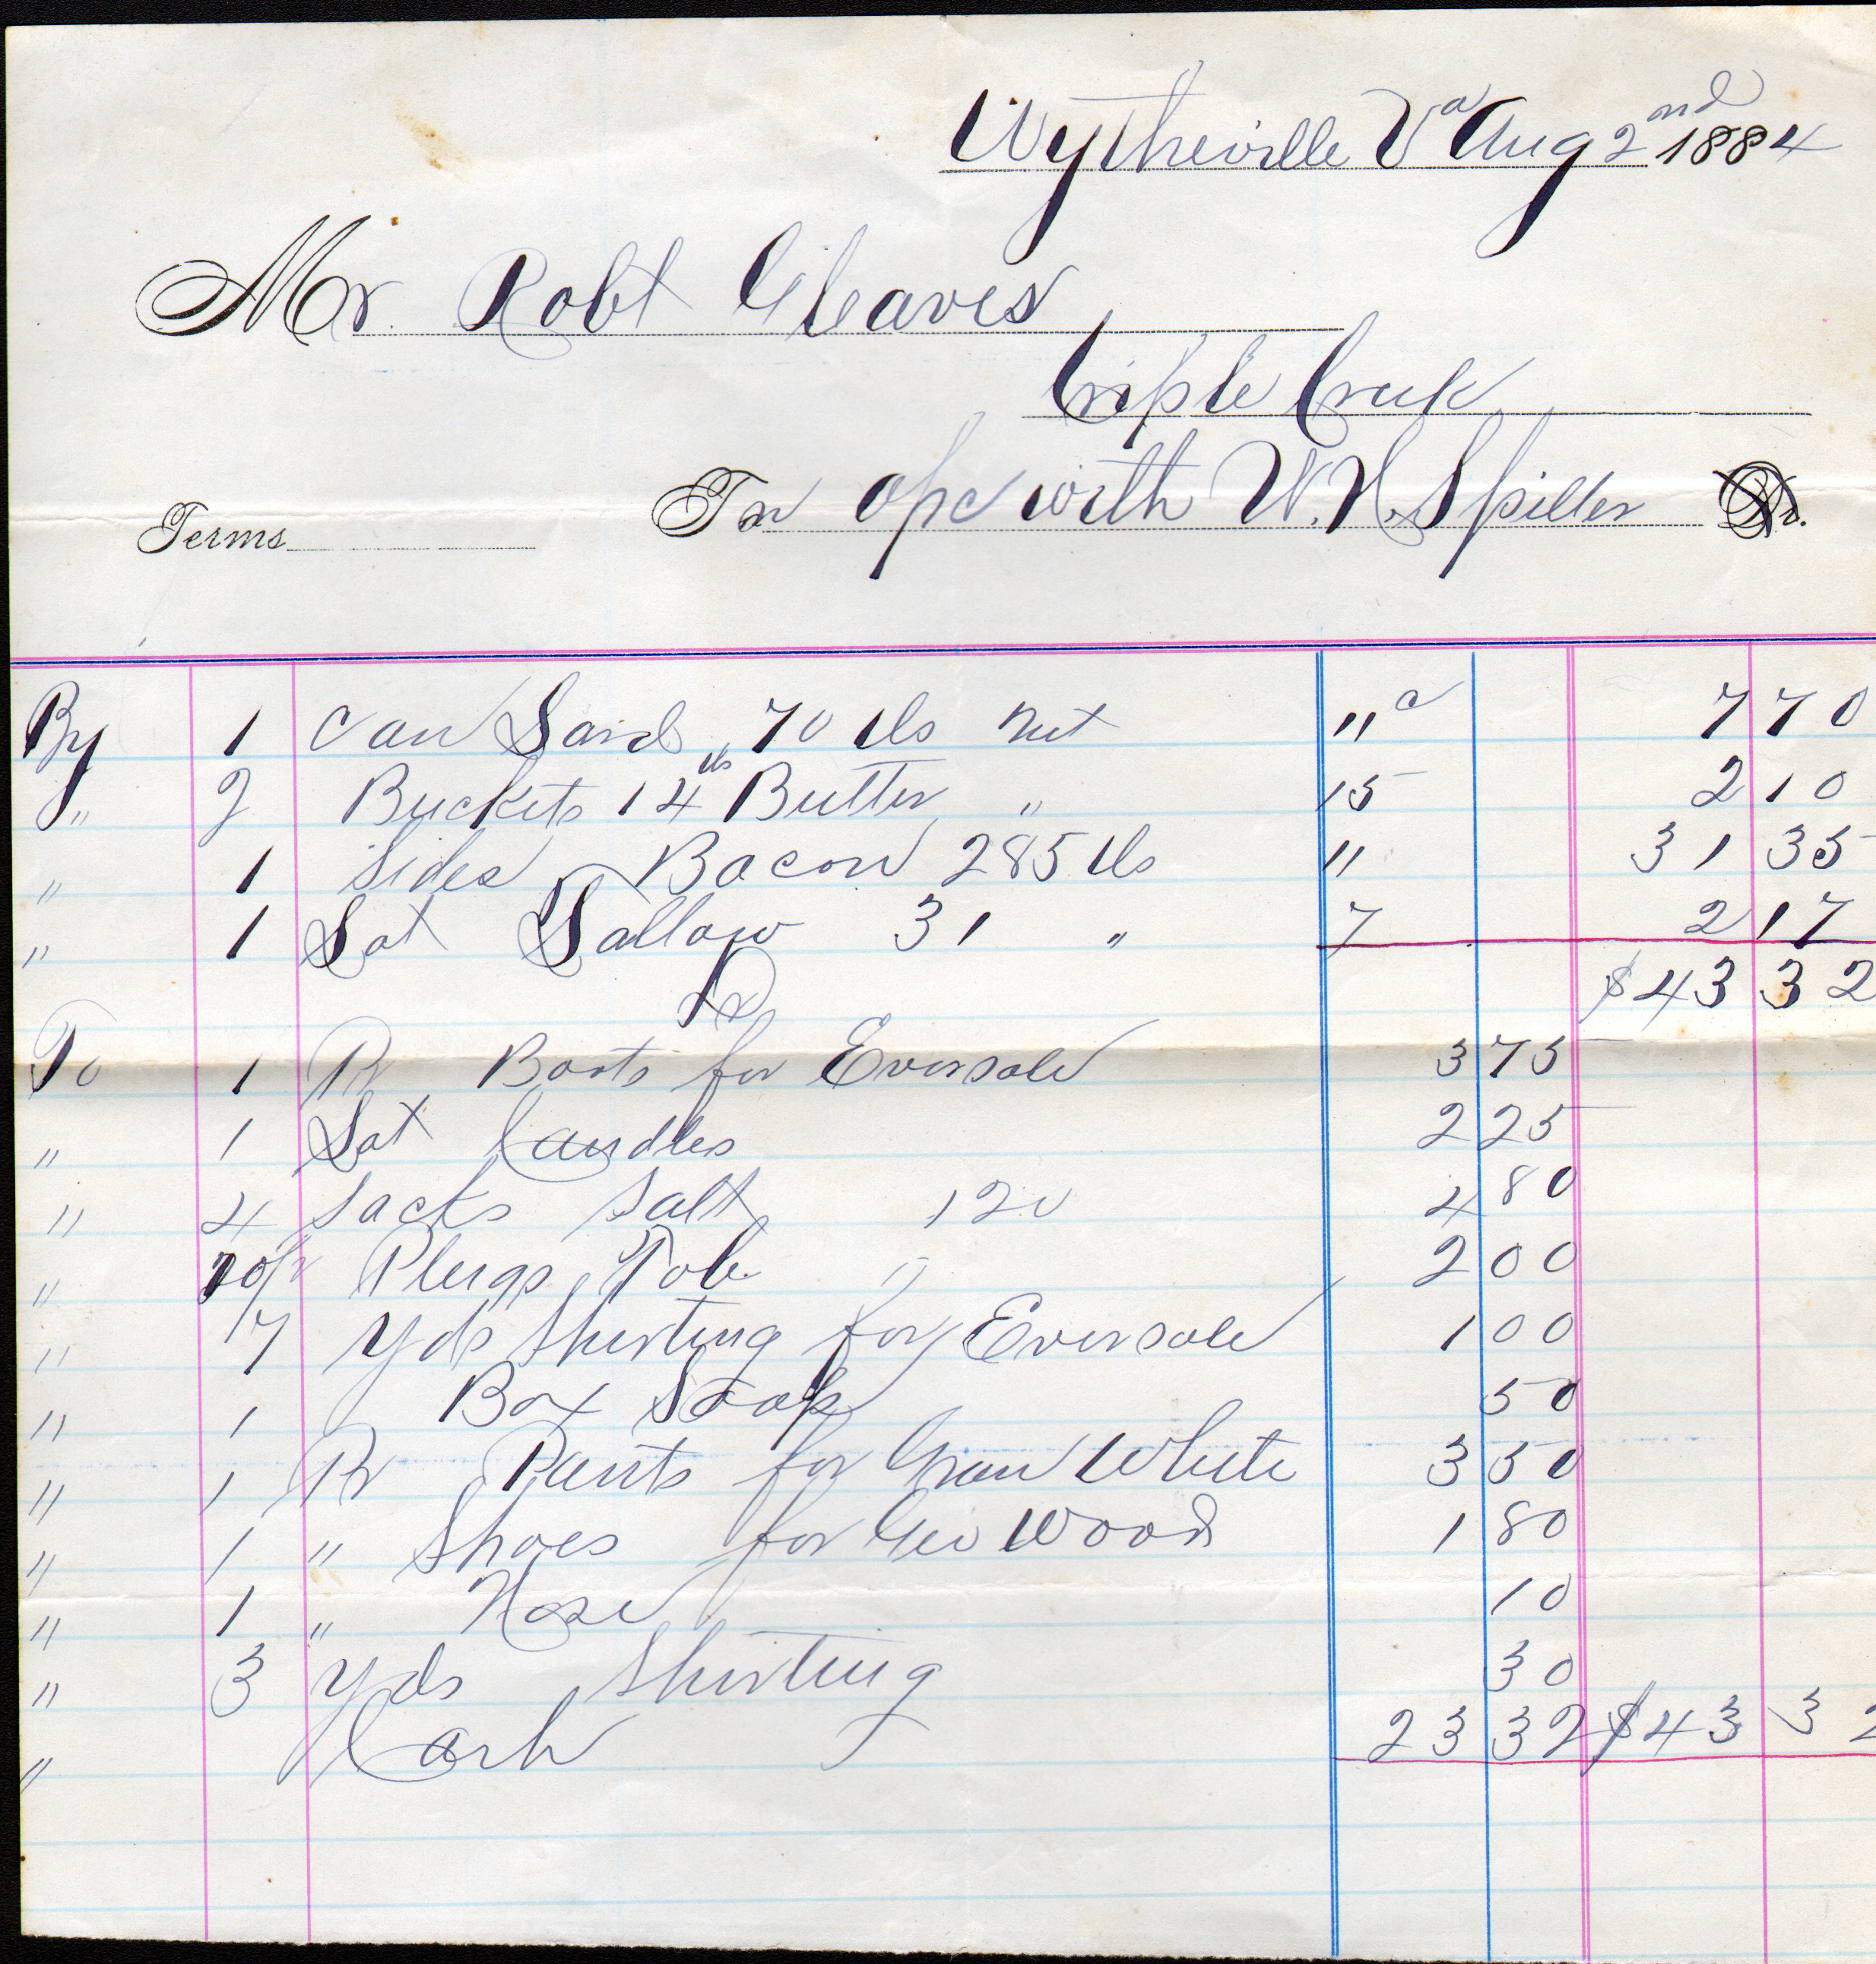 Wytheville Va Aug 2nd 1884
Mr. Robt Cleaves
Cripple Creek
Terms In opc with W. H. Spiller Dr.
By 1 Can Lard 70 lbs net 11c 7 70
" 2 Buckets 14 lbs Butter " 15 2 10
" 1 Sides Bacon 285 lbs 11 31 35
" 1 Lot Tallow 31 " 7 2 17
$43 32
To 1 Pr Boots for Eversole 3 75
" 1 Lot Candles 2 25
" 4 Sacks Salt 120 4 80
" Plugs Tob. 2 00
" Yds Shirting for Eversole 1 00
" 1 Box Soap 50
" 1 Pr Pants for White 3 50
" 1 " Shoes for Geo Wood 1 80
" 1 " Hose 10
" 3 Yds Shirting 30
" Cash 23 32 $43 32